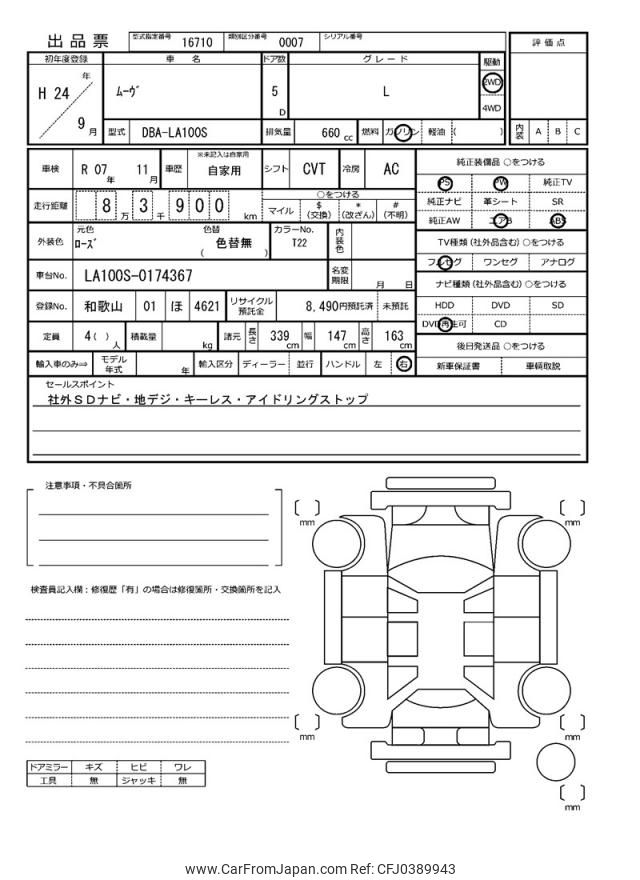 出品票 型式指定番号 16710 類別区分番号 0007 シリアル番号
初年度登録 車名 ドア数 グレード 駆動 評価点
H 24 年 9 月 ムーヴ 5 D L 2WD 4WD
型式 DBA-LA100S 排気量 660 cc 燃料 ガソリン 軽油 ( ) 内装 A B C
車検 R 07 年 11 月 車歴 ※未記入は自家用 自家用 シフト CVT 冷房 AC 純正装備品 ○をつける
PS PW 純正TV
走行距離 8 万 3 千 9 0 0 km ○をつける 純正ナビ 革シート SR
マイル $ (交換) * (改ざん) # (不明) 純正AW エアB ABS
外装色 元色 ローズ 色替 色替無 ( ) カラーNo. T22 内装色 TV種類 (社外品含む) ○をつける
フルセグ ワンセグ アナログ
車台No. LA100S-0174367 名変期限 月 日 ナビ種類 (社外品含む) ○をつける
登録No. 和歌山 01 ほ 4621 リサイクル預託金 8,490円預託済 未預託 HDD DVD SD
DVD再生可 CD
定員 4( ) 人 積載量 kg 諸元 長さ 339 cm 幅 147 cm 高さ 163 cm 後日発送品 ○をつける
輸入車のみ⇒ モデル年式 年 輸入区分 ディーラー 並行 ハンドル 左 右 新車保証書 車輌取説
セールスポイント
社外SDナビ・地デジ・キーレス・アイドリングストップ
注意事項・不具合箇所
mm mm
検査員記入欄：修復歴「有」の場合は修復箇所・交換箇所を記入
mm mm
ドアミラー キズ ヒビ ワレ
工具 無 ジャッキ 無
mm
www.CarFromJapan.com Ref: CFJ0389943